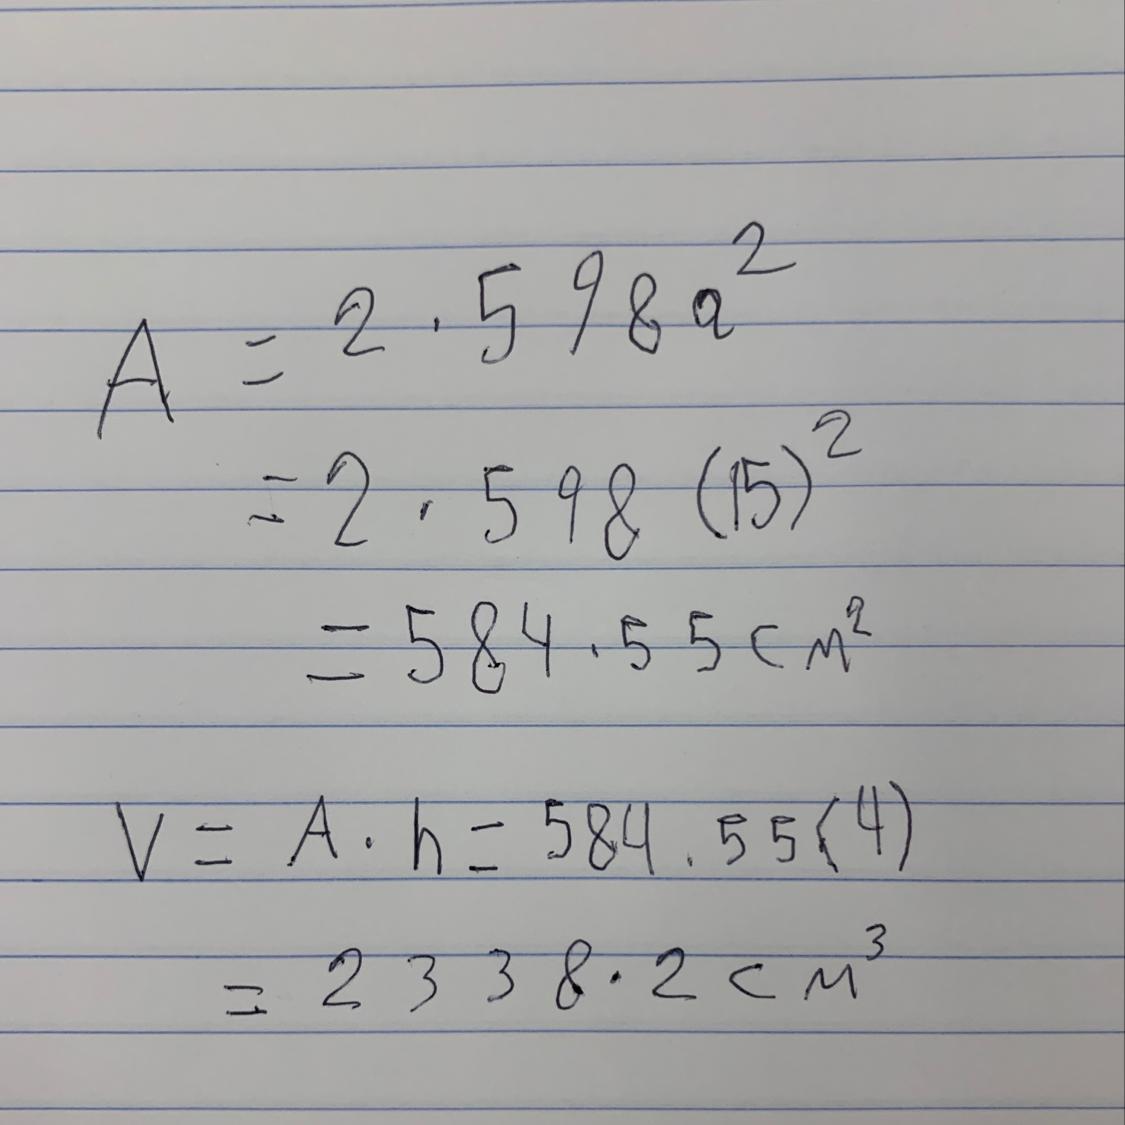 A = 2.598a²
= 2.598 (15)²
= 584.55 cм²
V = A · h = 584.55(4)
= 2338.2 cм³